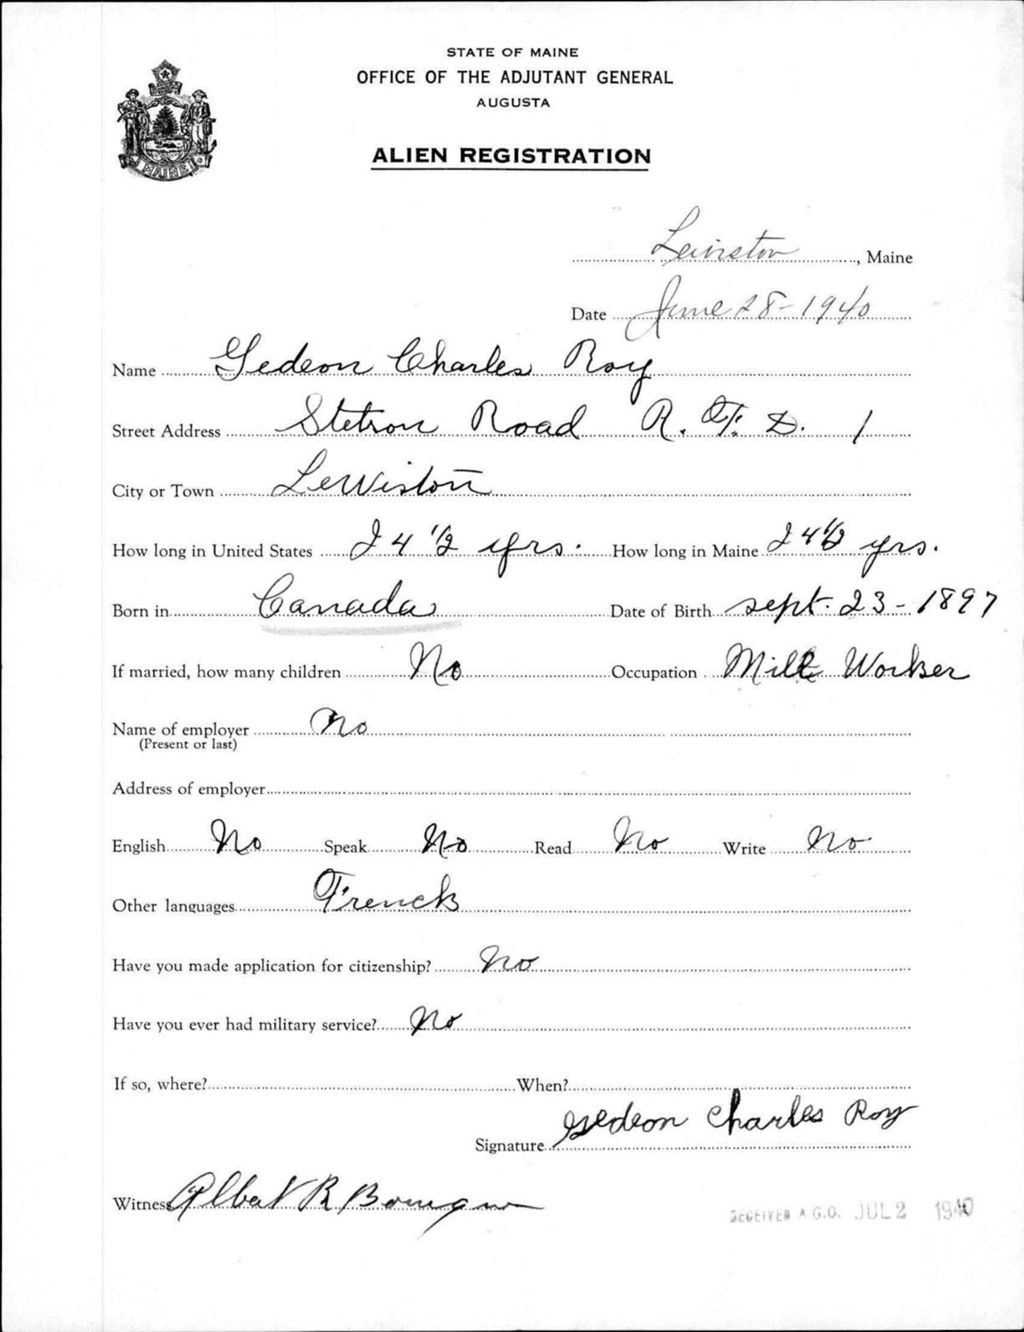 STATE OF MAINE
OFFICE OF THE ADJUTANT GENERAL
AUGUSTA
ALIEN REGISTRATION
MAINE
Lewiston, Maine
Date June 28-1940
Name Gedeon Charles Roy
Street Address Stetson Road R. F. D. 1
City or Town Lewiston
How long in United States 24 1/2 yrs. How long in Maine 24 1/2 yrs.
Born in Canada Date of Birth sept. 23-1897
If married, how many children No Occupation Mill Worker
Name of employer No
(Present or last)
Address of employer
English No Speak No Read No Write No
Other languages French
Have you made application for citizenship? No
Have you ever had military service? No
If so, where? When?
Signature Gedeon Charles Roy
Witness Albert R
RECEIVED A.G.O. JUL 2 1940